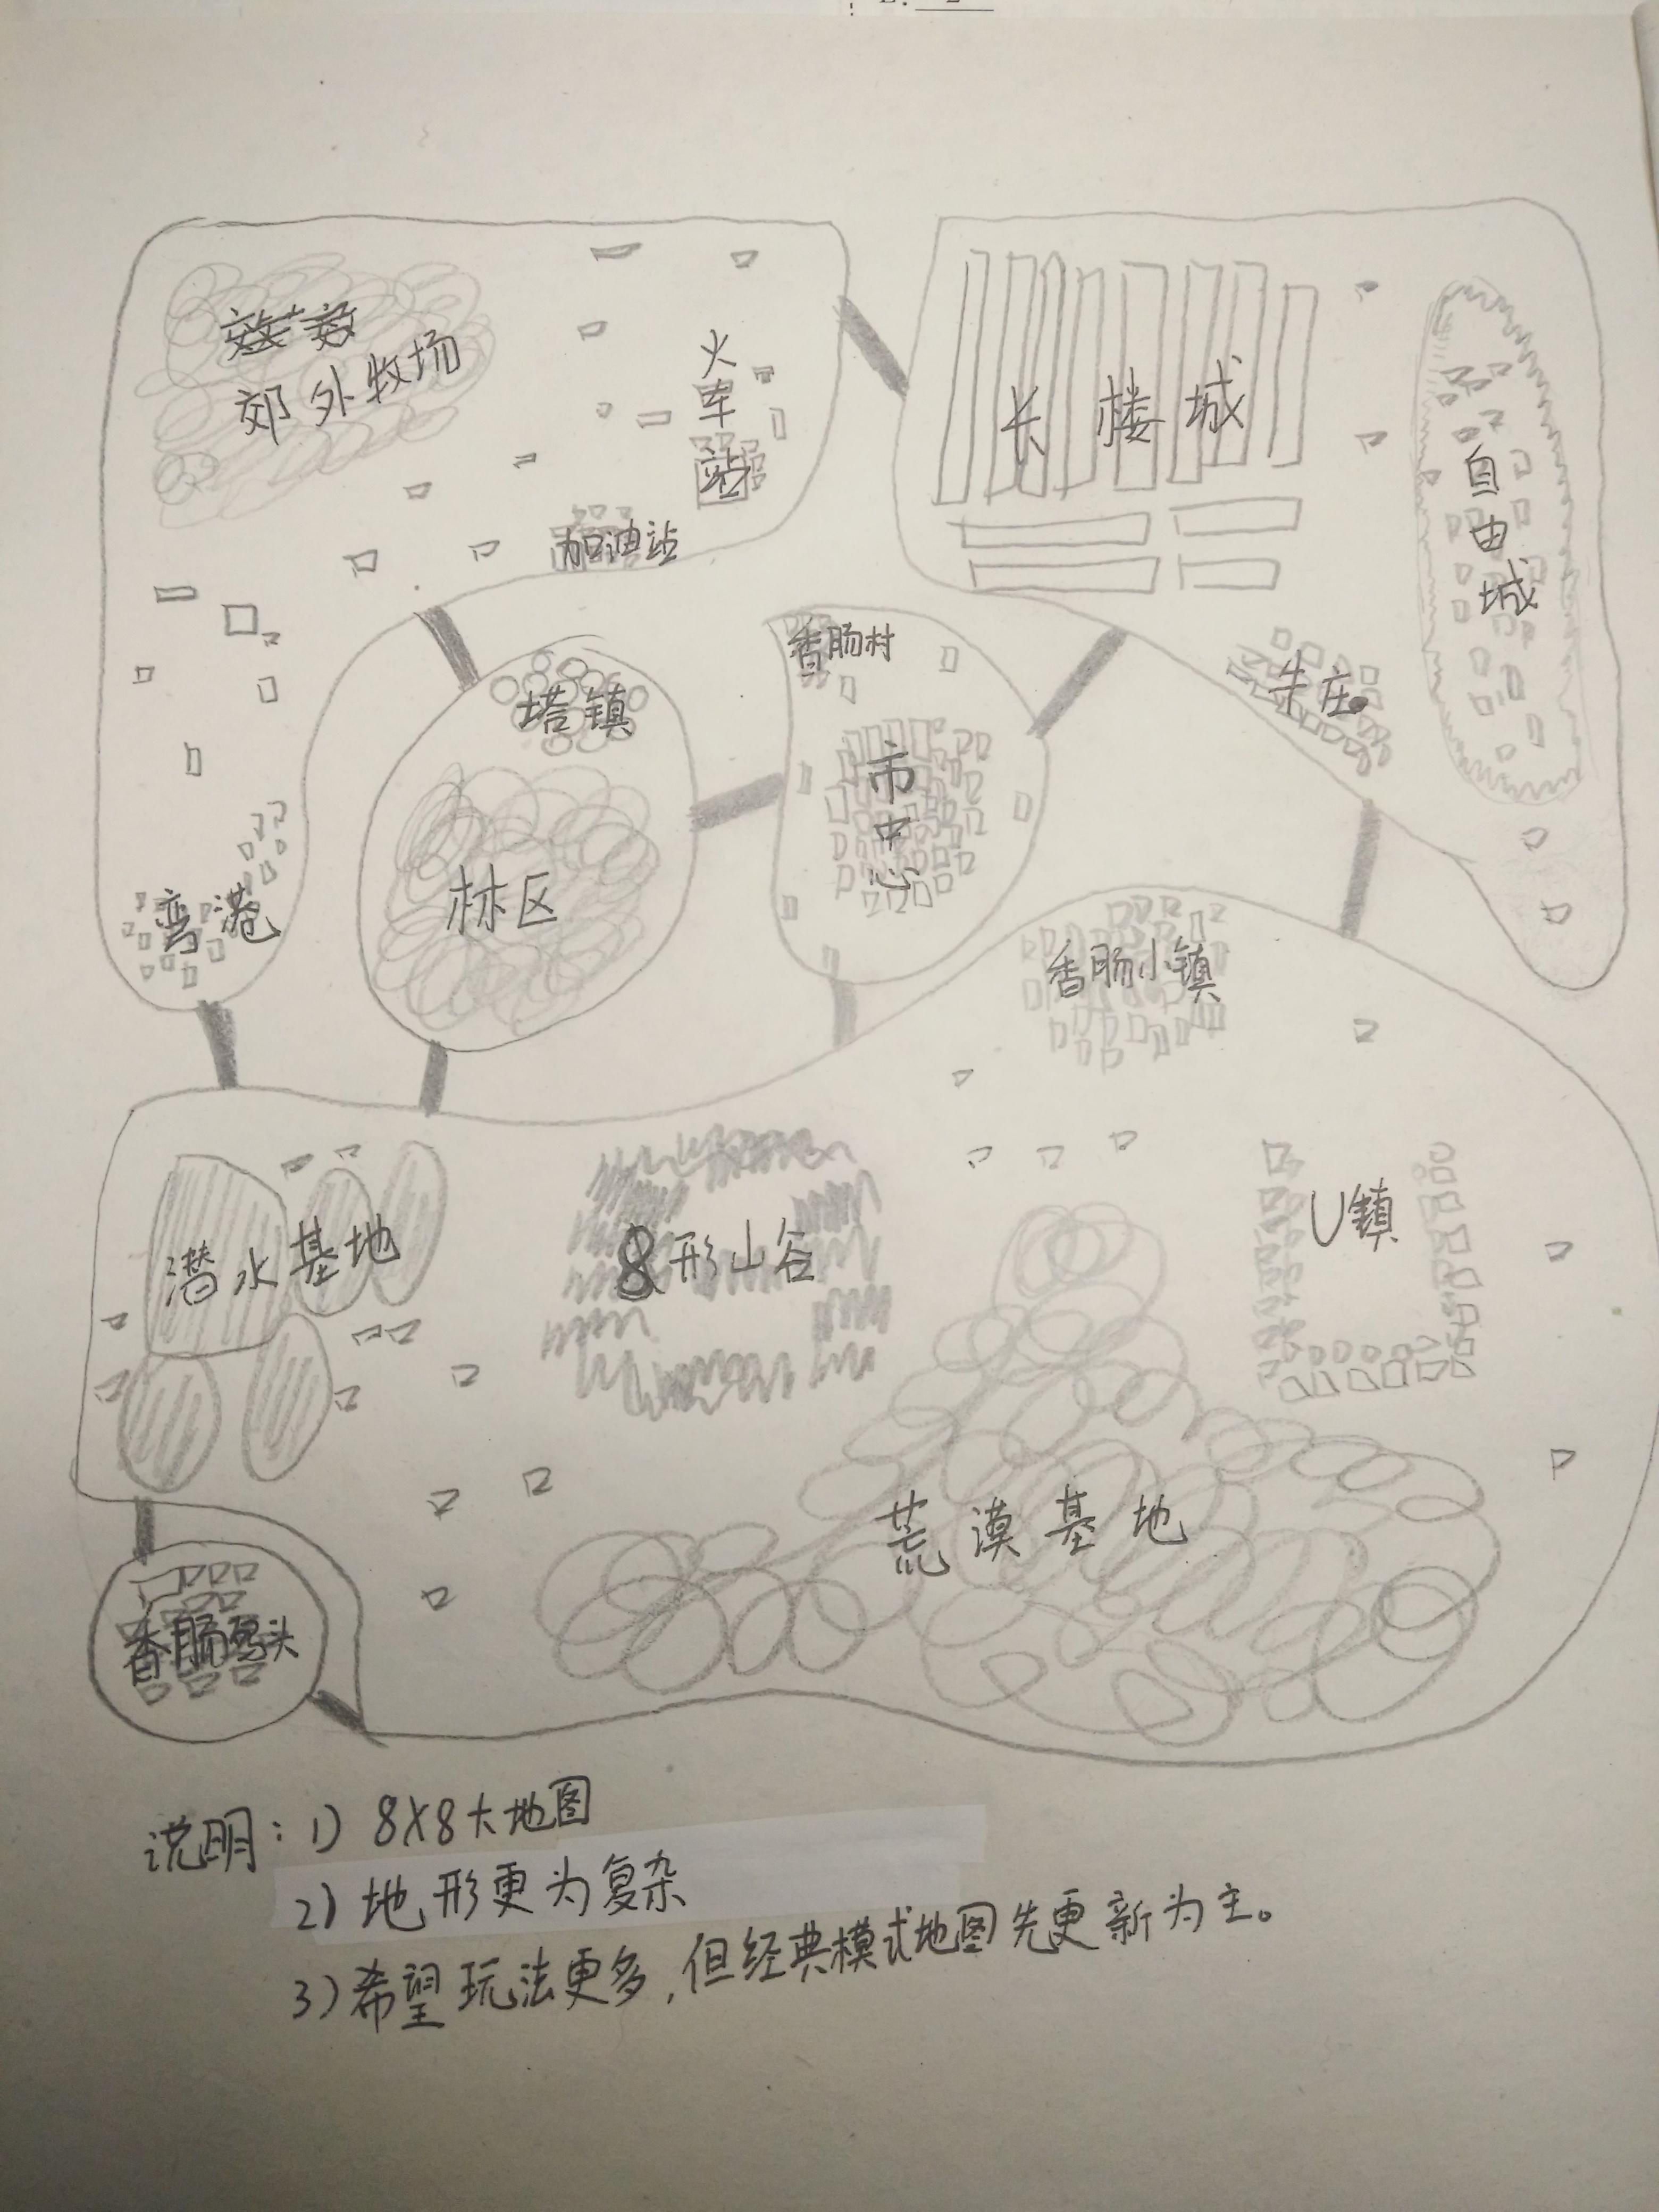 郊外牧场
火车站
加油站
长楼城
自由城
朱庄
香肠村
塔镇
市中心
林区
弯港
香肠小镇
潜水基地
8形山谷
U镇
荒漠基地
香肠码头
说明：1）8X8大地图
2）地形更为复杂
3）希望玩法更多，但经典模式地图先更新为主。